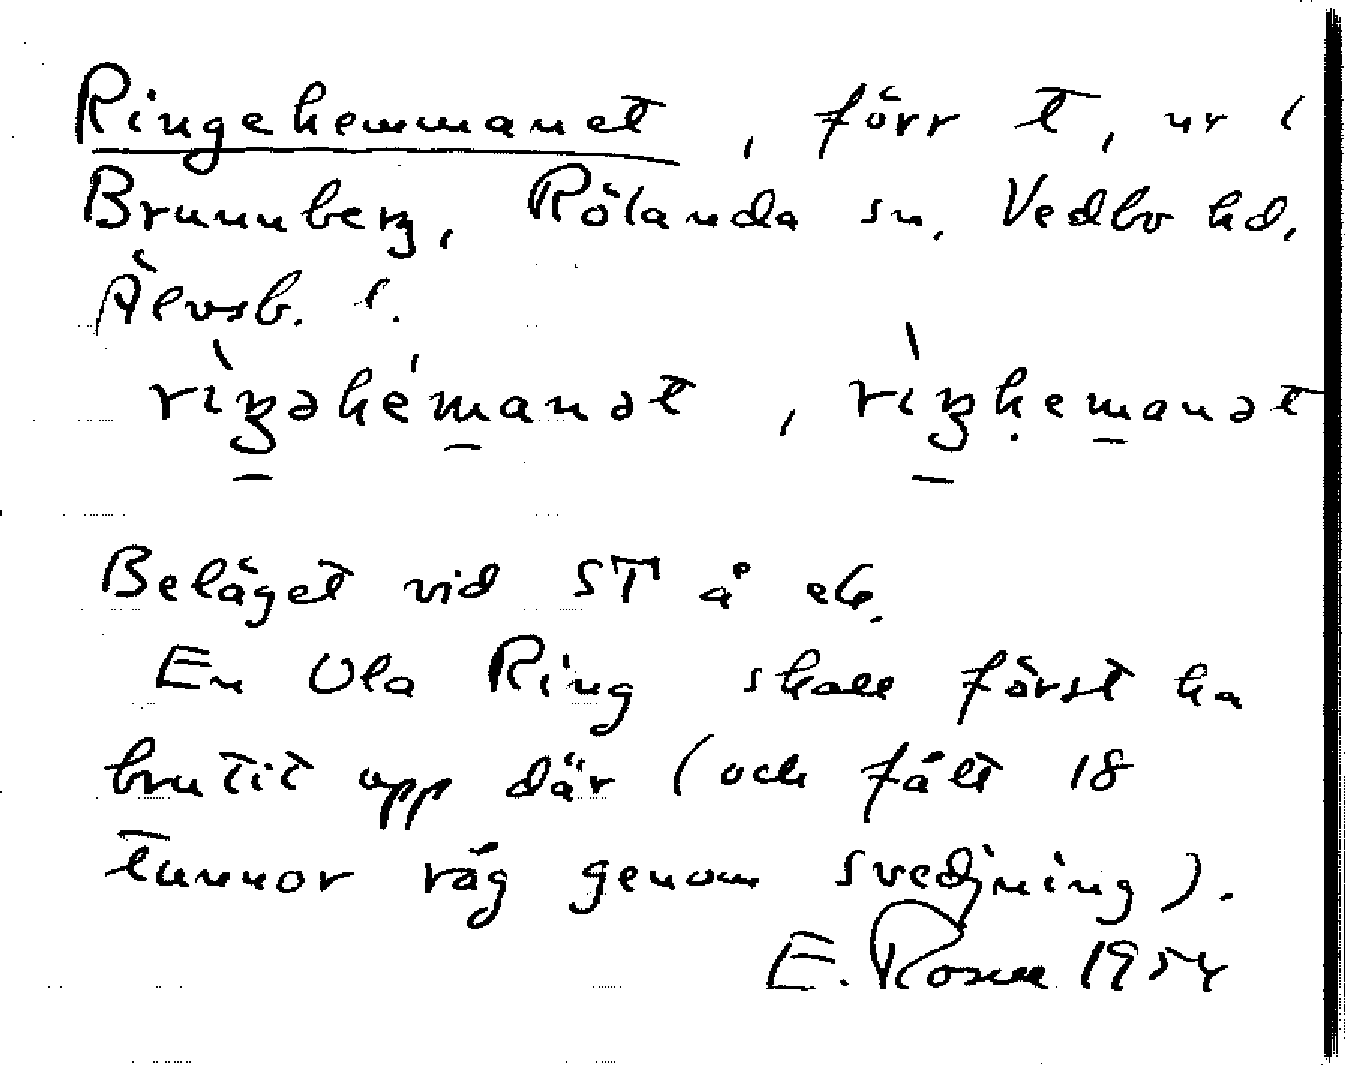 Ringehemmanet, förr t, ur i
Brunnberg, Rölanda sn. Vedbo hd.
Älvsb. l.
rìŋəhémanət, rìŋhemanət
Beläget vid ST å eG.
En Ola Ring skall först ha
brutit upp där (och fått 18
tunnor råg genom svedjning).
E. Rosell 1954